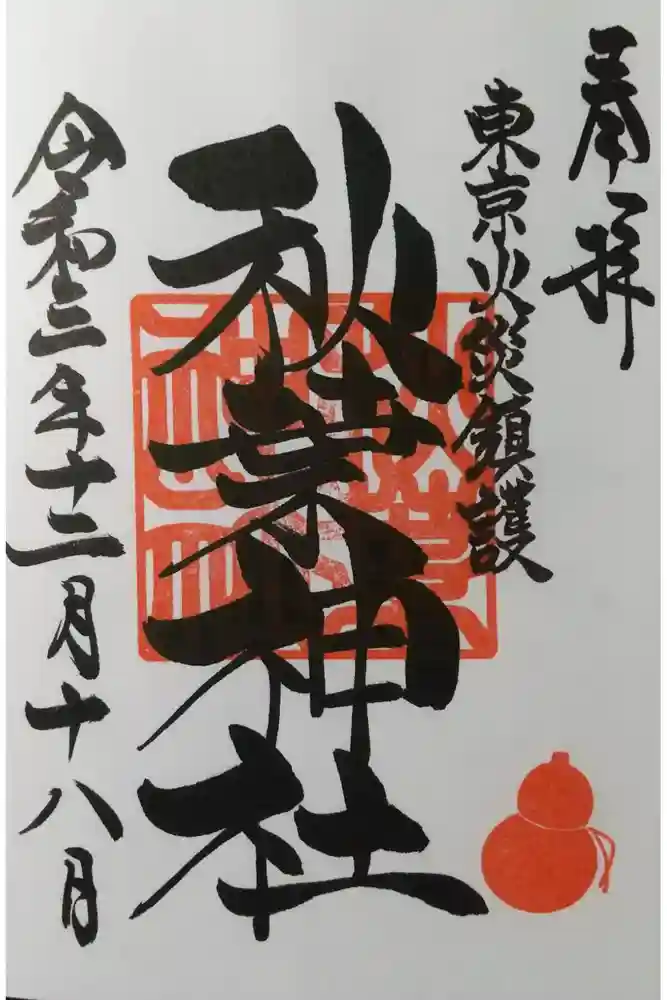 奉拝
東京火災鎮護
秋葉神社
令和三年十二月十八月